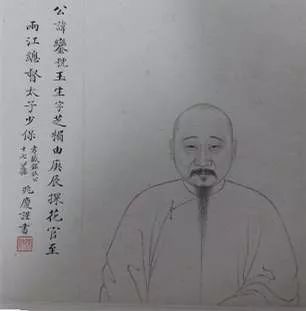 公諱鑾號玉生字芝楣由庚辰探花官至
兩江總督太子少保
兆慶謹書